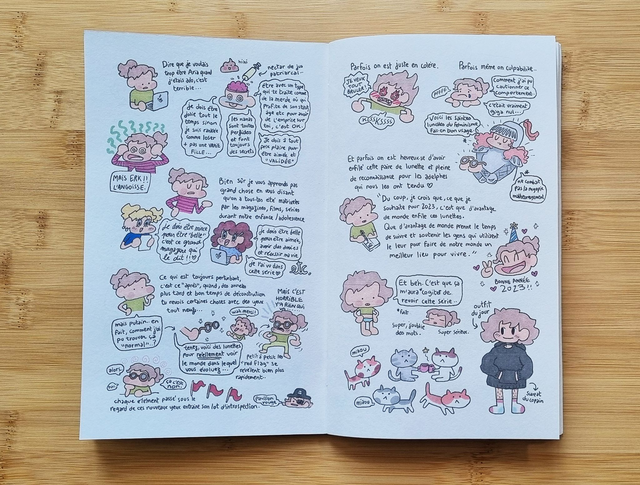 Dire que je voulais
trop être Aria quand
j'étais ado, c'est
terrible...
hihi
nectar de jus
patriarcal
je dois être
douce tout le
temps sinon
je suis radiée
comme loser
+ pas une vraie
FILLE...
les nanas
sont toutes
perfides
et font
toujours
des secrets
être avec un type
qui te traite comme
de la merde ou qui
profite de son statut
âgé etc pour avoir
de l'emprise sur
toi, c'est OK.
je dois à tout
prix plaire pour
être aimée et
"VALIDÉE"
MAIS ERK !!
L'ANGOISSE.
Bien sûr je vous apprends pas
grand chose en vous disant
qu'on a tous·tes été matrixés
par les magazines, films, séries
durant notre enfance / adolescence
je dois être mince
pour être "belle"
c'est ce grand
magazine qui
le dit !!
je dois être belle
pour être aimée,
avoir des amies et
réussir ma vie
je l'ai vu dans
cette série
etc.
Ce qui est toujours perturbant,
c'est ce "après", quand, des années
plus tard et bon temps de déconstruction
tu revois certaines choses avec des yeux
tout neuf...
MAIS C'EST
HORRIBLE
Y'A RIEN QUI
mais putain. en
fait, comment j'ai
pu trouver ça
"normal"...
wah merci!
tenez, voici des lunettes
pour réellement voir
le monde dans lequel
vous évoluez...
Petit à petit les
"red flag" se
révèlent bien plus
rapidement.
alors
ça c'est
NON.
chaque élément passé sous le
regard de ces nouveaux yeux entraîne son lot d'introspection.
Pavillon
rouge
Parfois on est juste en colère.
JE VEUX
TOUT
BRULER!
KSSKSSSS
Parfois même on culpabilise.
pffff
Comment j'ai pu
cautionner ce
comportement.
c'était vraiment
giga nul...
Voici les saintes
lunettes du féminisme.
Fais-en bon usage.
on combat
pas la magie
malheureusement
Et parfois on est heureux·se d'avoir
enfilé cette paire de lunette et pleine
de reconnaissance pour les adelphes
qui nous les ont tendu
"Du coup, je crois que, ce que je
souhaite pour 2023, c'est que d'avantage
de monde enfile ces lunettes.
Que d'avantage de monde prenne le temps
de suivre et soutenir les gens qui utilisent
le leur pour faire de notre monde un
meilleur lieu pour vivre."
BONNE ANNÉE
2023 !!
Et beh. C'est que ça
m'aura cogité de
revoir cette série.
*fait
Super, journée
des mots.
Super soirée.
outfit
du jour
miaou
miaou
Sweat
du copain